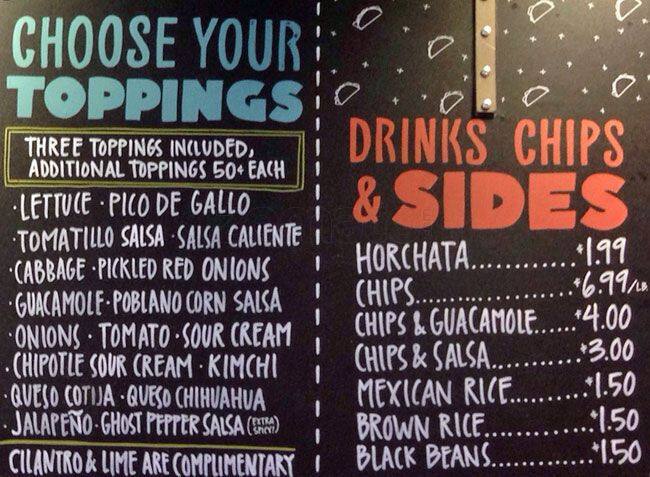 CHOOSE YOUR
TOPPINGS
THREE TOPPINGS INCLUDED,
ADDITIONAL TOPPINGS 50¢ EACH
· LETTUCE · PICO DE GALLO
· TOMATILLO SALSA · SALSA CALIENTE
· CABBAGE · PICKLED RED ONIONS
· GUACAMOLE · POBLANO CORN SALSA
· ONIONS · TOMATO · SOUR CREAM
· CHIPOTLE SOUR CREAM · KIMCHI
· QUESO COTIJA · QUESO CHIHUAHUA
· JALAPEÑO · GHOST PEPPER SALSA (EXTRA SPICY!)
CILANTRO & LIME ARE COMPLIMENTARY
DRINKS CHIPS
& SIDES
HORCHATA..........$1.99
CHIPS..............$6.99/LB.
CHIPS & GUACAMOLE.....$4.00
CHIPS & SALSA.........$3.00
MEXICAN RICE........$1.50
BROWN RICE..........$1.50
BLACK BEANS.........$1.50